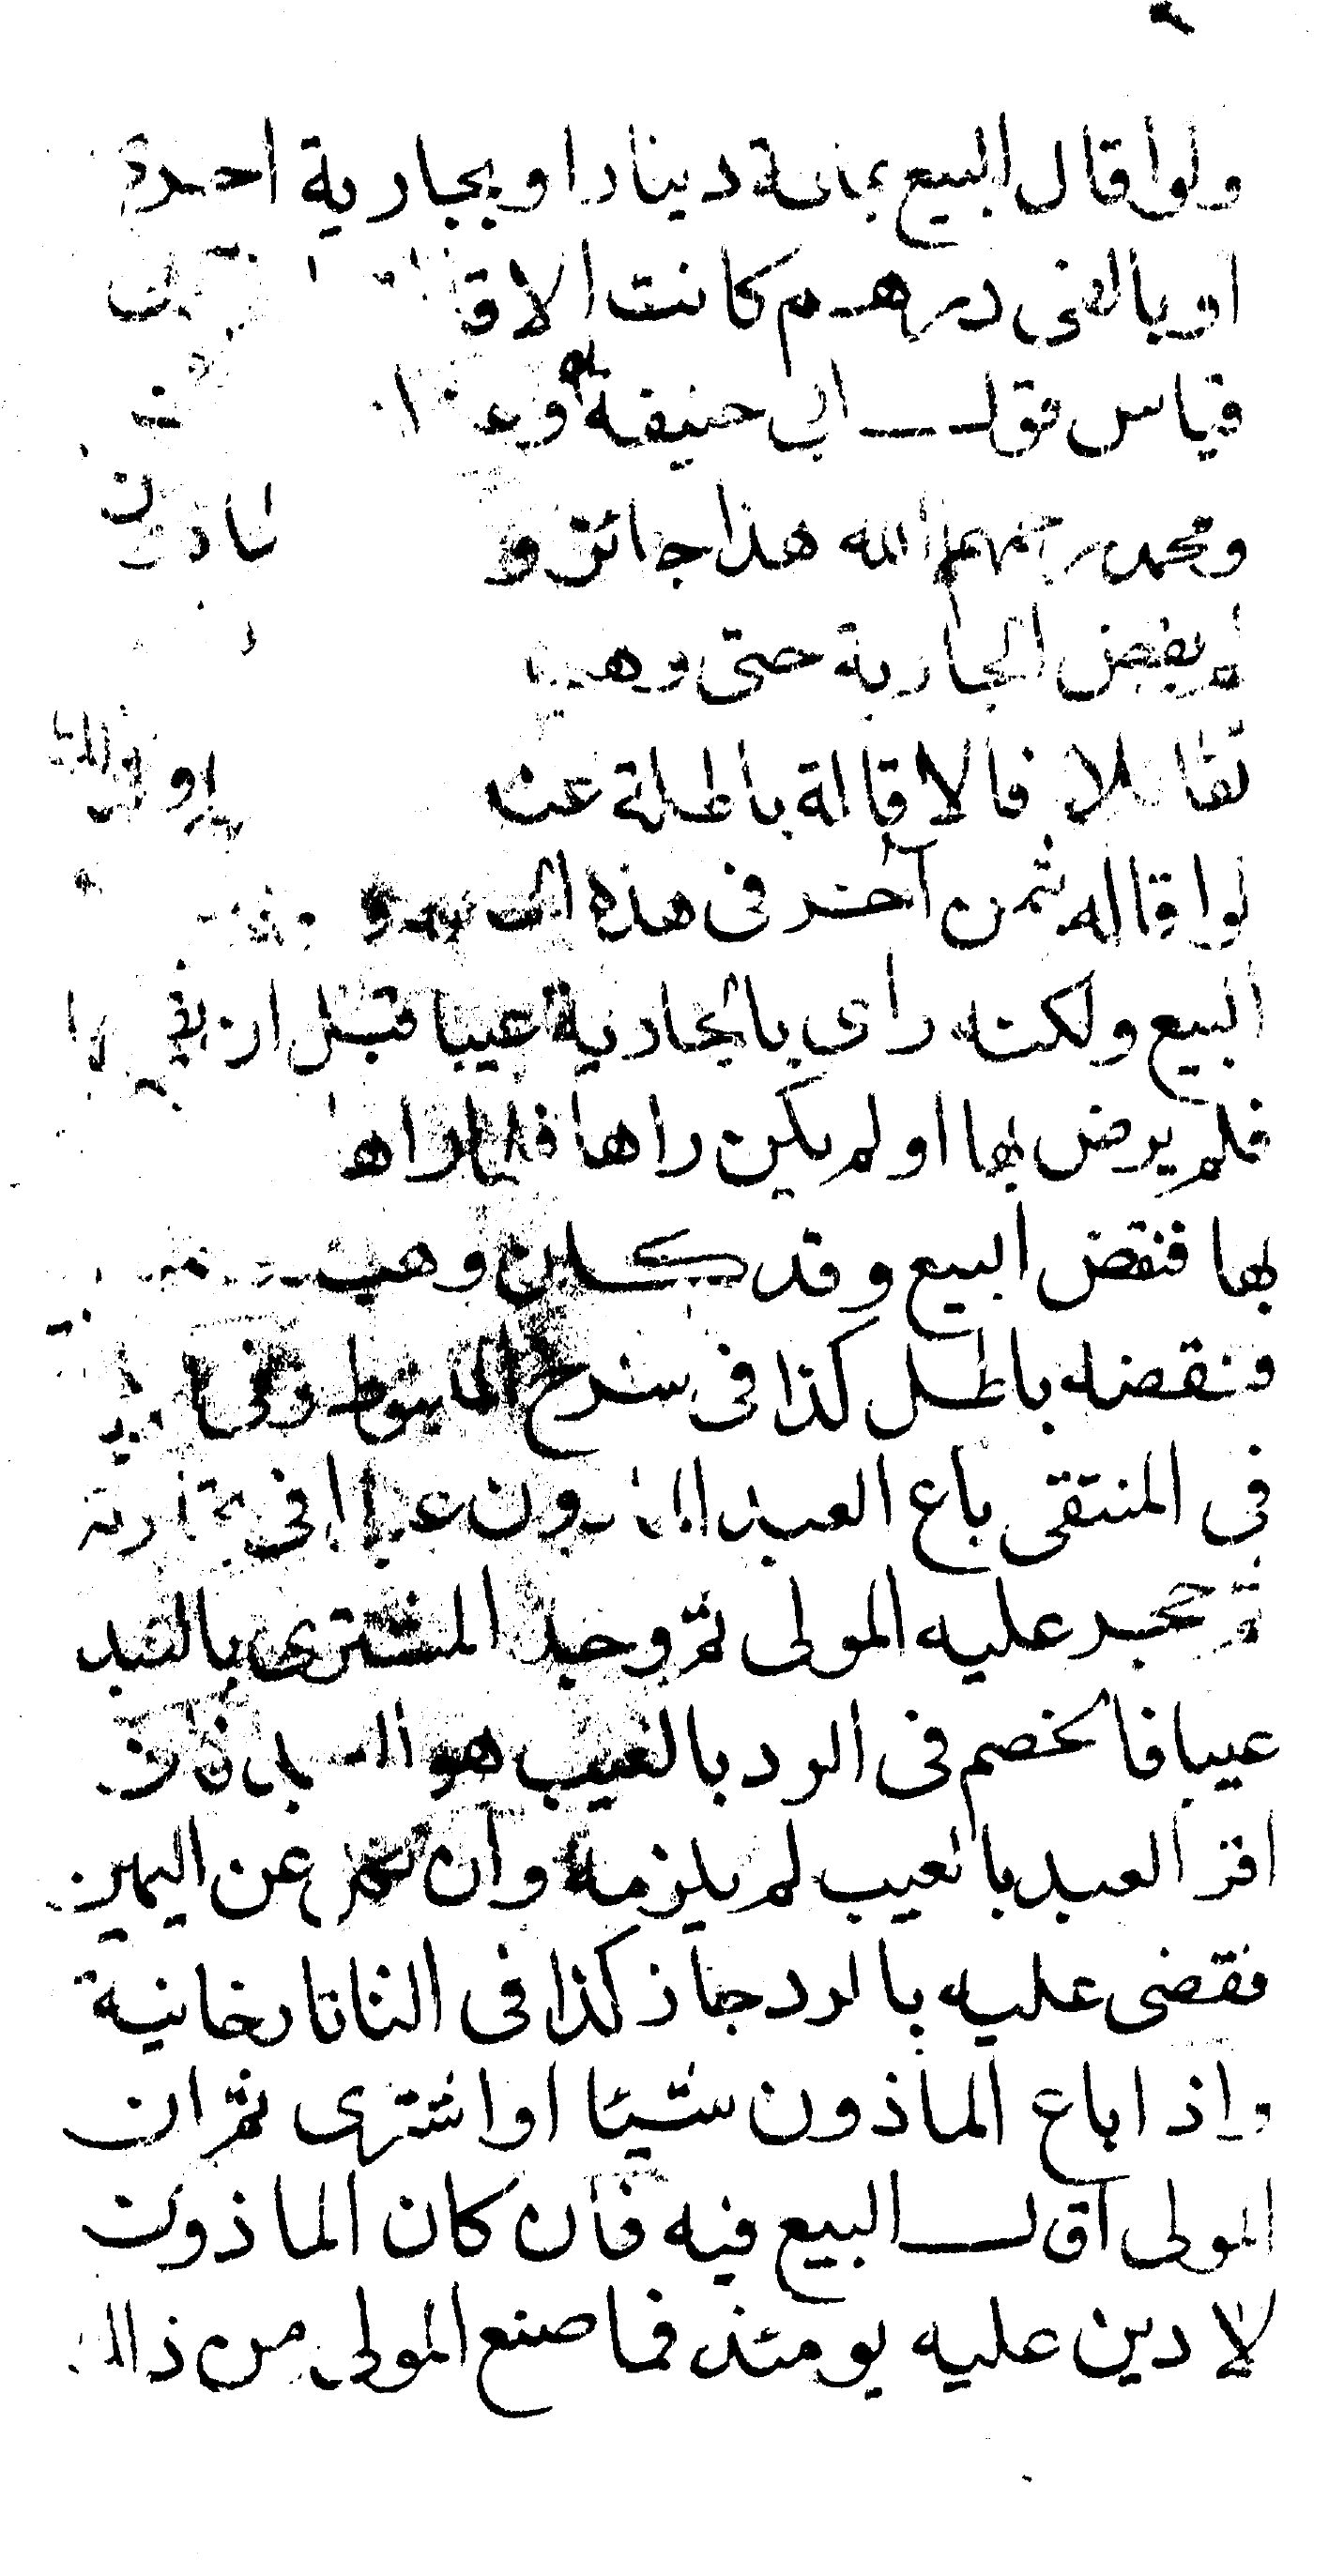 ولو اقال البيع بمائة دينار او بجارية اخرى
او بالفى درهم كانت الاقا
قياس قول ابي حنيفة
ومحمد رحمهم الله هذا جائز و
لم يقبض الجارية حتى وهب
تقايلا فالاقالة باطلة عند
لو اقاله بثمن آخر فى هذه
البيع ولكنه راى بالجارية عيبا قبل ان
فلم يرض بها او لم يكن راها فلما راها
بها فنقض البيع وقد كان وهب
فنقضه باطل كذا فى شرح المبسوط وفى
فى المنتقى باع العبد الماذون عبدا فى تجارته
ثم حجر عليه المولى ثم وجد المشترى بالعبد
عيبا فالخصم فى الرد بالعيب هو العبد فان
اقر العبد بالعيب لم يلزمه وان نكل عن اليمين
فقضى عليه بالرد جاز كذا فى التاتارخانية
واذا باع الماذون شيئا او اشترى ثم ان
المولى اقال البيع فيه فان كان الماذون
لا دين عليه يومئذ فما صنع المولى من ذلك